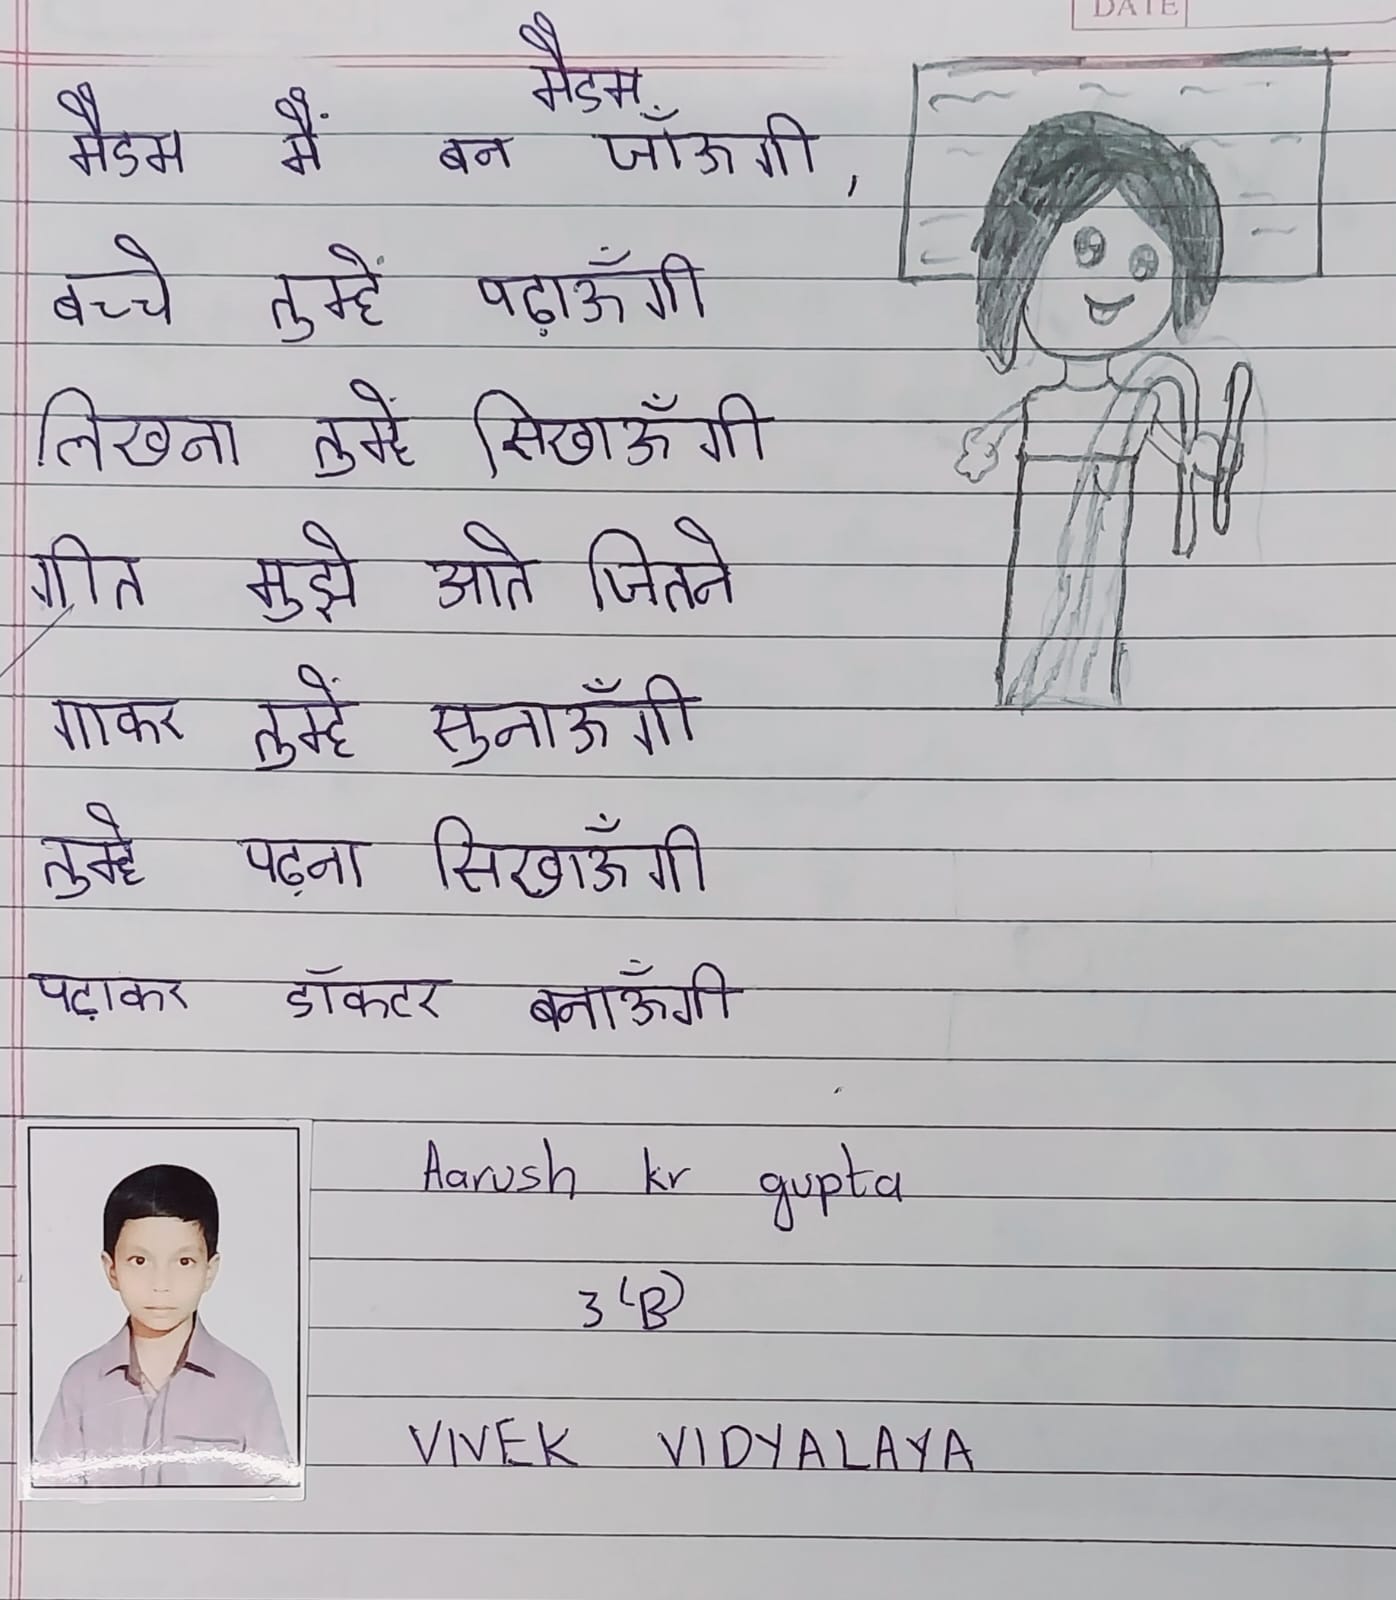 DATE
मैडम
मैडम मैं बन जाँऊगी,
बच्चे तुम्हें पढ़ाऊँगी
लिखना तुम्हें सिखाऊँगी
गीत मुझे आते जितने
गाकर तुम्हें सुनाऊँगी
तुम्हे पढ़ना सिखाऊँगी
पढ़ाकर डॉकटर बनाऊँगी
Aarush kr gupta
3 (B)
VIVEK VIDYALAYA